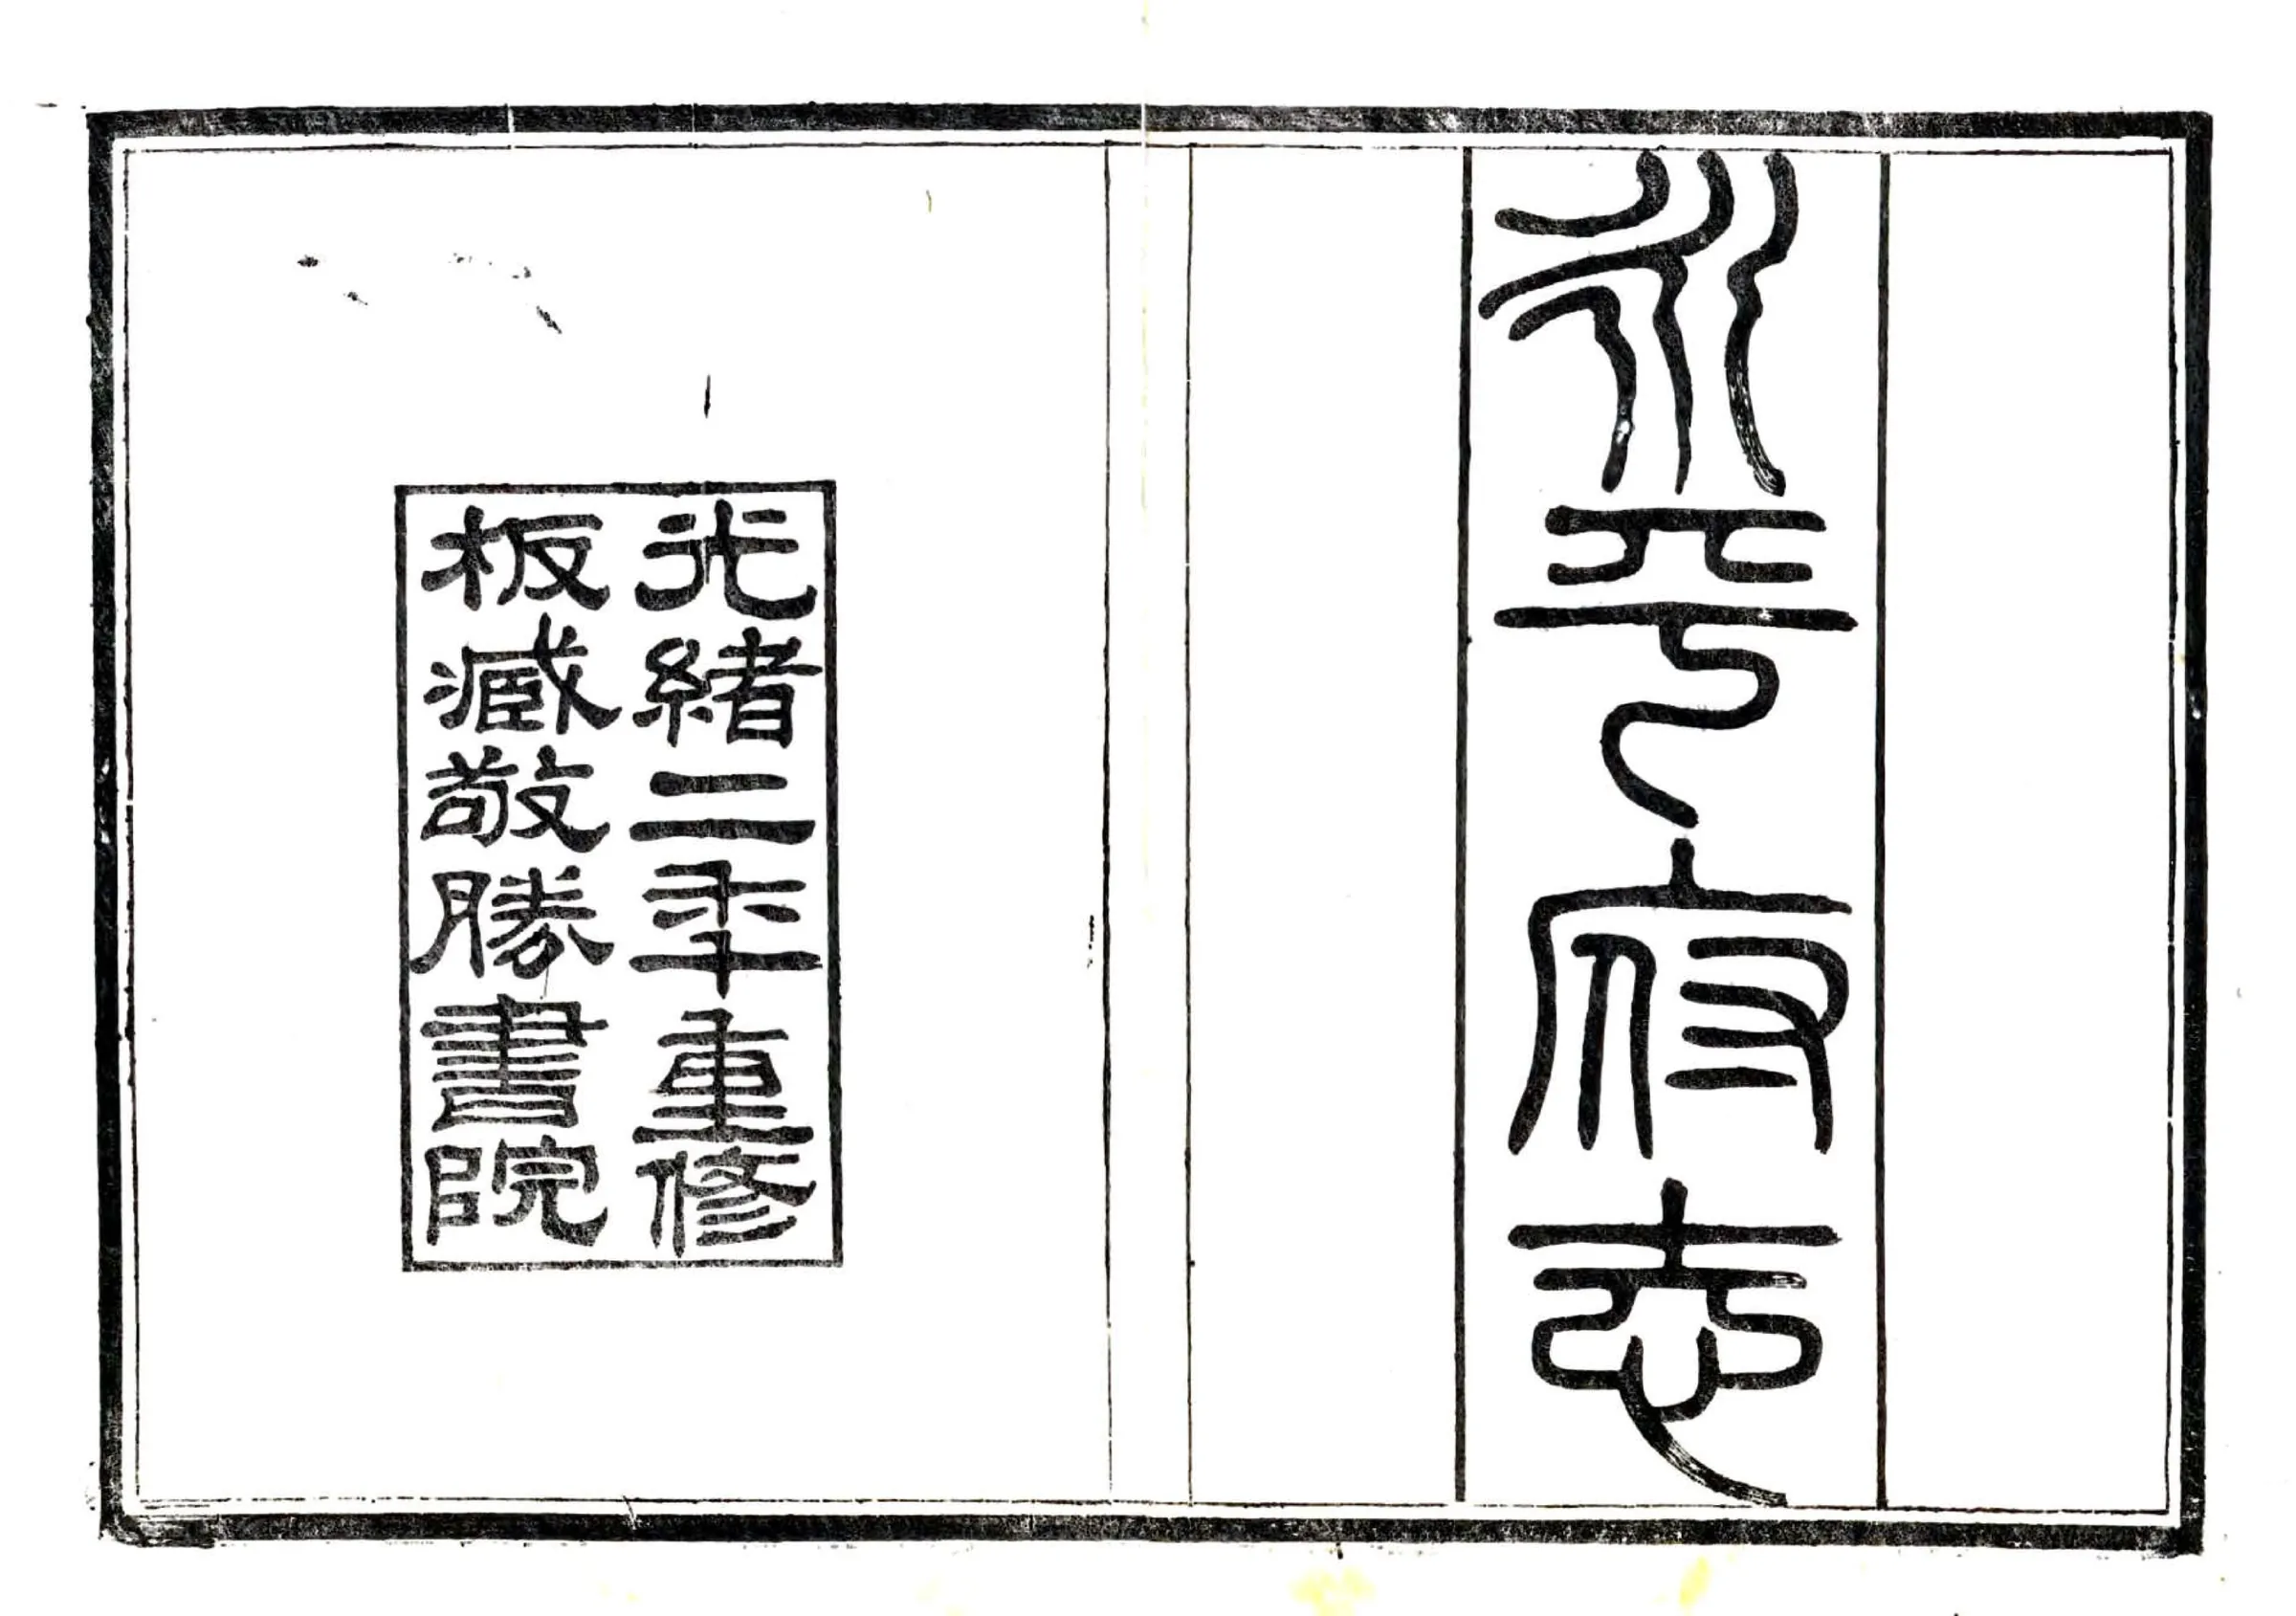 永平府志
光緒二年重修
板臧敬勝書院